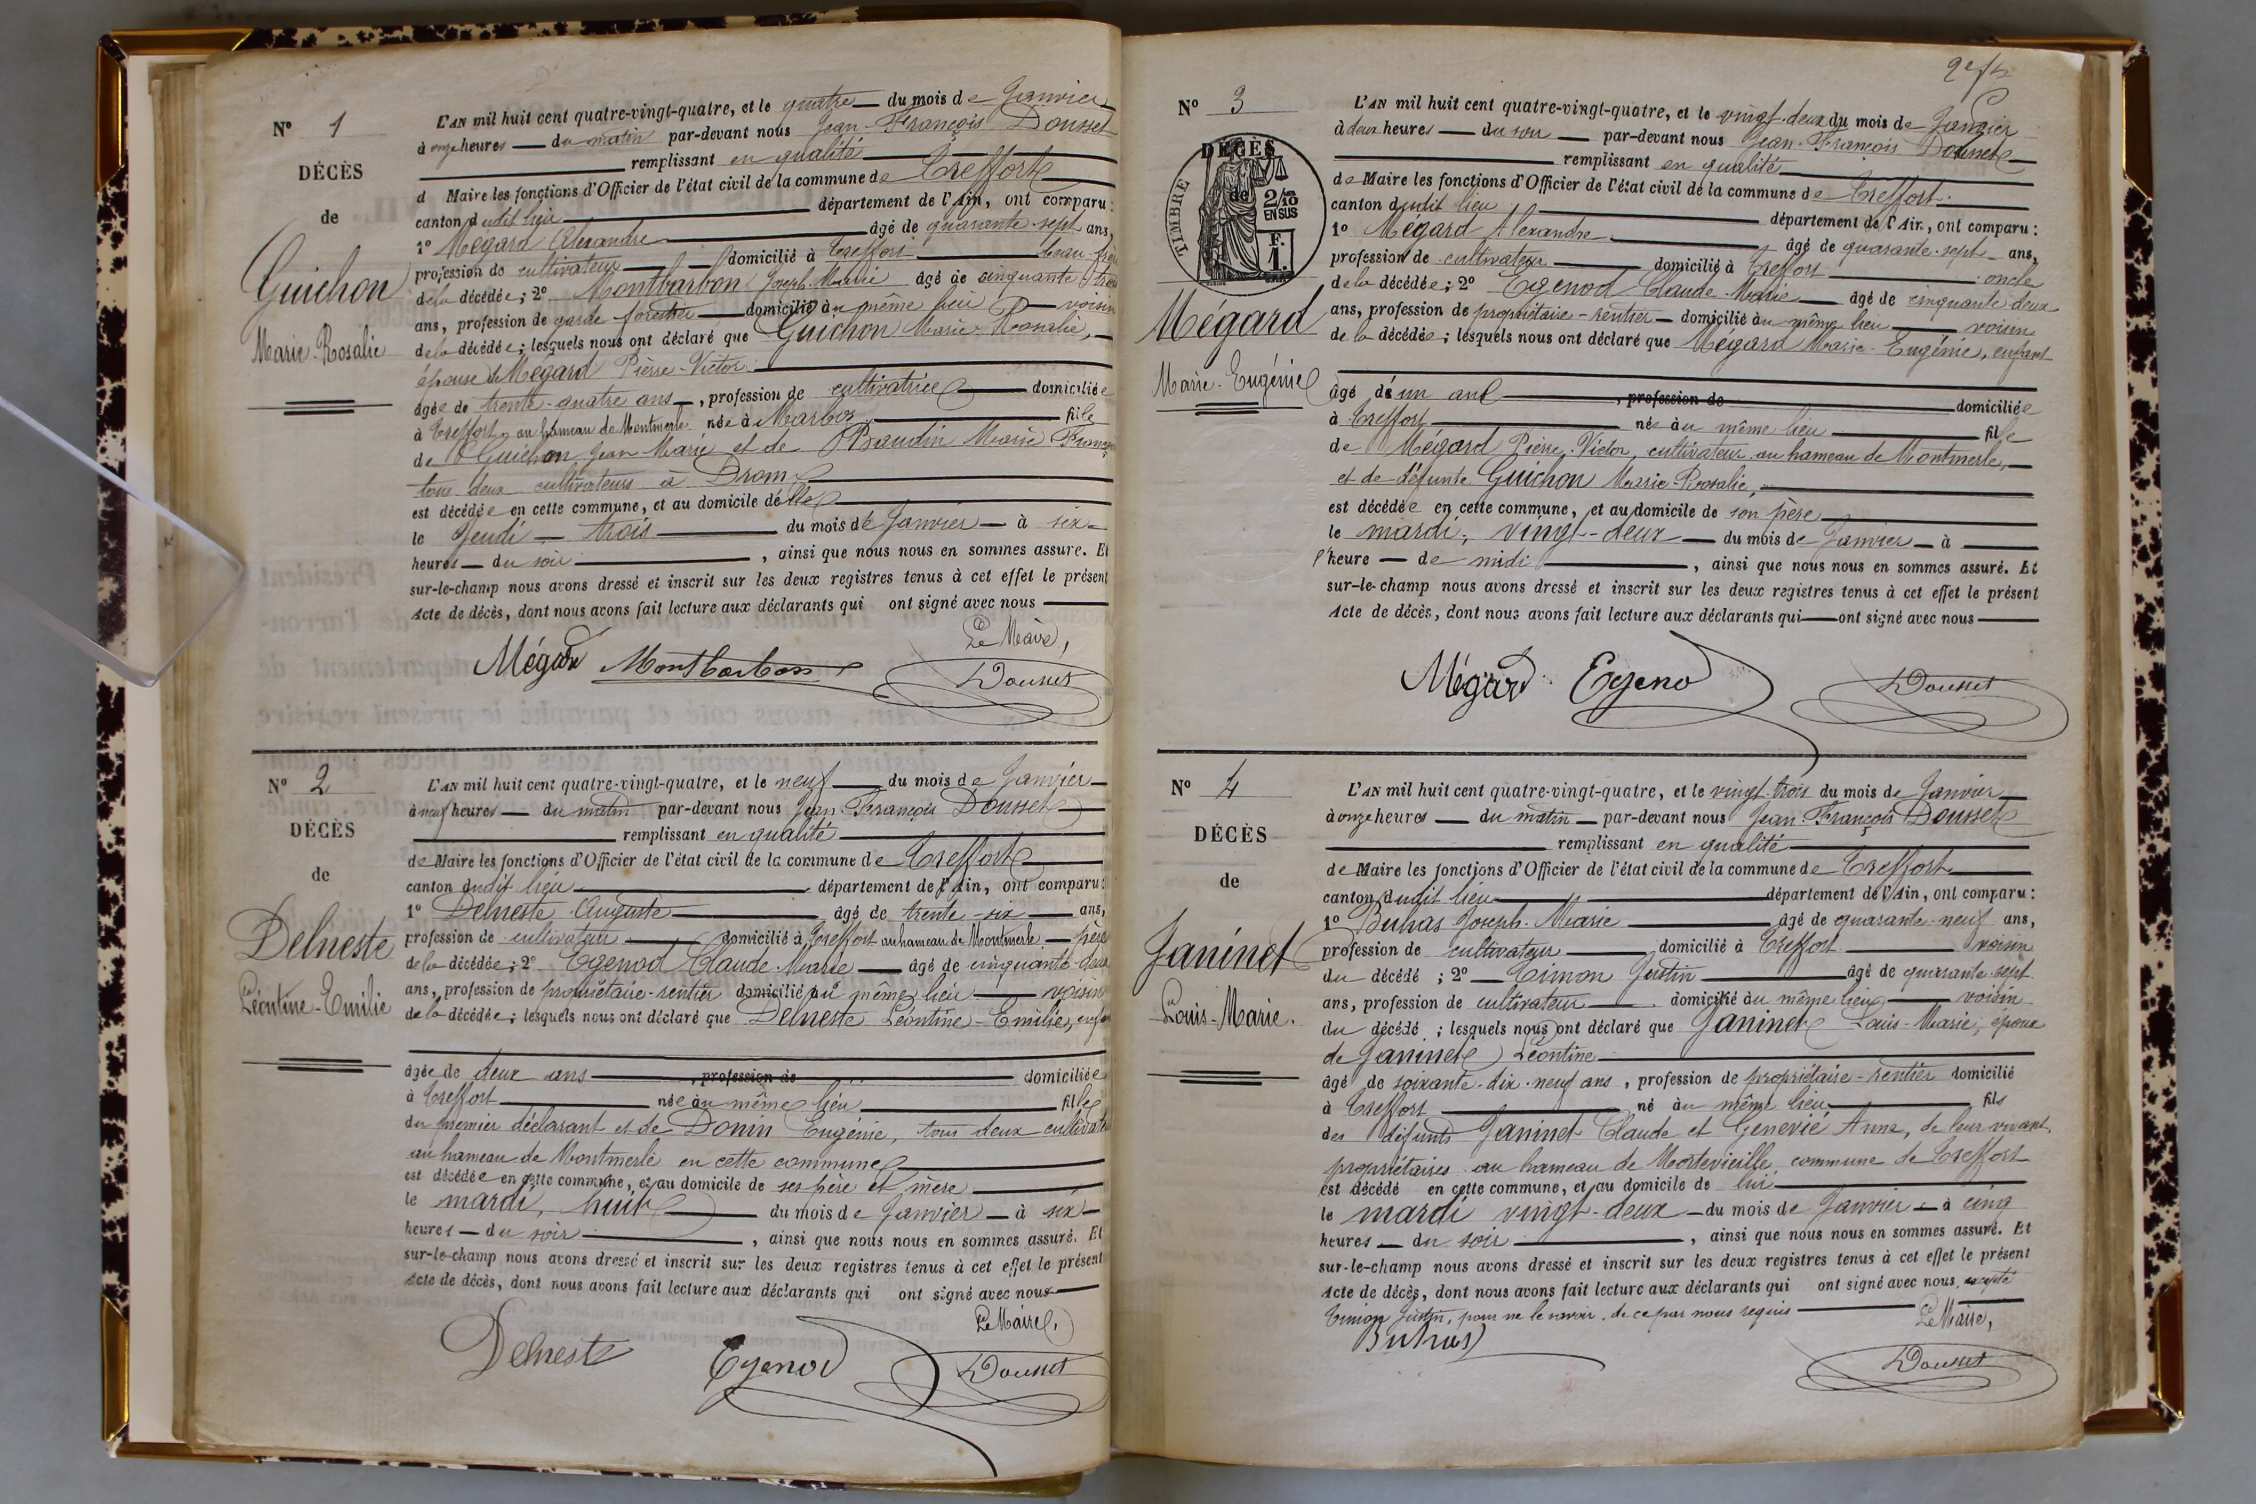 Nº 1
DÉCÈS
de
Guichon
Marie-Rosalie
L'AN mil huit cent quatre-vingt-quatre, et le quatre du mois de Janvier
à onze heures du matin par-devant nous Jean-François Dousset
remplissant en qualité
d Maire les fonctions d'Officier de l'état civil de la commune de Treffort
canton dudit lieu département de l'Ain, ont comparu:
1º Mégard Alexandre âgé de quarante-sept ans,
profession de cultivateur domicilié à Treffort beau-frère
de la décédée; 2º Montbarbon Joseph-Marie âgé de cinquante trois
ans, profession de garde forestier domicilié au même lieu voisin
de la décédée; lesquels nous ont déclaré que Guichon Marie-Rosalie,
épouse de Mégard Pierre-Victor
âgée de trente-quatre ans, profession de cultivatrice domiciliée
à Treffort au hameau de Montmerle née à Marboz fille
de Guichon Jean-Marie et de Baudin Marie
tous deux cultivateurs à Drom
est décédée en cette commune, et au domicile d'elle
le Jeudi trois du mois de Janvier à six
heures du soir, ainsi que nous nous en sommes assuré. Et
sur-le-champ nous avons dressé et inscrit sur les deux registres tenus à cet effet le présent
Acte de décès, dont nous avons fait lecture aux déclarants qui ont signé avec nous
Le Maire,
Mégard Montbarbon Dousset
Nº 2
DÉCÈS
de
Delneste
Léontine-Emilie
L'AN mil huit cent quatre-vingt-quatre, et le neuf du mois de Janvier
à neuf heures du matin par-devant nous Jean-François Dousset
remplissant en qualité
de Maire les fonctions d'Officier de l'état civil de la commune de Treffort
canton dudit lieu département de l'Ain, ont comparu:
1º Delneste Auguste âgé de trente-six ans,
profession de cultivateur domicilié à Treffort au hameau de Montmerle père
de la décédée; 2º Egenod Claude-Marie âgé de cinquante-deux
ans, profession de propriétaire-rentier domicilié au même lieu voisin
de la décédée; lesquels nous ont déclaré que Delneste Léontine-Emilie, enfant
âgée de deux ans, profession de domiciliée
à Treffort née au même lieu fille
du premier déclarant et de Donin Eugénie, tous deux cultivateurs
au hameau de Montmerle en cette commune
est décédée en cette commune, et au domicile de ses père et mère
le mardi, huit du mois de Janvier à six
heures du soir, ainsi que nous nous en sommes assuré. Et
sur-le-champ nous avons dressé et inscrit sur les deux registres tenus à cet effet le présent
Acte de décès, dont nous avons fait lecture aux déclarants qui ont signé avec nous
Le Maire,
Delneste Egenod Dousset
Nº 3
DÉCÈS
de
TIMBRE
2/10
EN SUS
F.
1.
Mégard
Marie-Eugénie
L'AN mil huit cent quatre-vingt-quatre, et le vingt-deux du mois de Janvier
à deux heures du soir par-devant nous Jean-François Dousset
remplissant en qualité
de Maire les fonctions d'Officier de l'état civil de la commune de Treffort
canton dudit lieu département de l'Ain, ont comparu:
1º Mégard Alexandre âgé de quarante-sept ans,
profession de cultivateur domicilié à Treffort oncle
de la décédée; 2º Egenod Claude-Marie âgé de cinquante-deux
ans, profession de propriétaire-rentier domicilié au même lieu voisin
de la décédée; lesquels nous ont déclaré que Mégard Marie-Eugénie, enfant
âgé d'un an, profession de domiciliée
à Treffort née au même lieu fille
de Mégard Pierre-Victor, cultivateur au hameau de Montmerle,
et de défunte Guichon Marie Rosalie,
est décédée en cette commune, et au domicile de son père
le mardi, vingt-deux du mois de Janvier à
l'heure de midi, ainsi que nous nous en sommes assuré. Et
sur-le-champ nous avons dressé et inscrit sur les deux registres tenus à cet effet le présent
Acte de décès, dont nous avons fait lecture aux déclarants qui ont signé avec nous
Mégard Egenod Dousset
Nº 4
DÉCÈS
de
Janinet
Louis-Marie.
L'AN mil huit cent quatre-vingt-quatre, et le vingt-trois du mois de Janvier
à onze heures du matin par-devant nous Jean-François Dousset
remplissant en qualité
de Maire les fonctions d'Officier de l'état civil de la commune de Treffort
canton dudit lieu département de l'Ain, ont comparu:
1º Buhas Joseph-Marie âgé de quarante-neuf ans,
profession de cultivateur domicilié à Treffort voisin
du décédé; 2º Justin âgé de quarante-sept
ans, profession de cultivateur domicilié au même lieu voisin
du décédé; lesquels nous ont déclaré que Janinet Louis-Marie, époux
de Janinet Léontine
âgé de soixante-dix-neuf ans, profession de propriétaire-rentier domicilié
à Treffort né au même lieu fils
des défunts Janinet Claude et Genevié Anne, de leur vivant,
propriétaires au hameau de Mortevieille, commune de Treffort
est décédé en cette commune, et au domicile de lui
le mardi vingt-deux du mois de Janvier à cinq
heures du soir, ainsi que nous nous en sommes assuré. Et
sur-le-champ nous avons dressé et inscrit sur les deux registres tenus à cet effet le présent
Acte de décès, dont nous avons fait lecture aux déclarants qui ont signé avec nous excepté
Justin, pour ne le savoir, de ce par nous requis
Le Maire,
Buhas Dousset